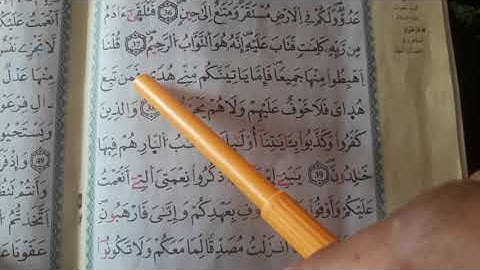 عَدُوٌّ وَلَكُمْ فِي ٱلْأَرْضِ مُسْتَقَرٌّ وَمَتَٰعٌ إِلَىٰ حِينٍ ٣٦ فَتَلَقَّىٰٓ ءَادَمُ
مِن رَّبِّهِۦ كَلِمَٰتٍ فَتَابَ عَلَيْهِ إِنَّهُۥ هُوَ ٱلتَّوَّابُ ٱلرَّحِيمُ ٣٧ قُلْنَا
ٱهْبِطُوا۟ مِنْهَا جَمِيعًا فَإِمَّا يَأْتِيَنَّكُم مِّنِّي هُدًى فَمَن تَبِعَ
هُدَايَ فَلَا خَوْفٌ عَلَيْهِمْ وَلَا هُمْ ٣٨ وَٱلَّذِينَ
كَفَرُوا۟ وَكَذَّبُوا۟ بِـَٔايَٰتِنَآ ٱلنَّارِ هُمْ فِيهَا
خَٰلِدُونَ ٣٩ يَٰبَنِيٓ نِعْمَتِيَ ٱلَّتِيٓ أَنْعَمْتُ
عَلَيْكُمْ وَأَوْفُوا۟ بِعَهْدِكُمْ وَإِيَّٰيَ فَٱرْهَبُونِ
أَنزَلْتُ مُصَدِّقًا لِّمَا مَعَكُمْ وَلَا تَكُونُوٓا۟
أَنْعَمْتُ
لَّا تَجْزِي
مِنْهَا عَدْلٌ
وَأَنتُمْ
ٱتَّخَذْتُمُ
عَفَوْنَا